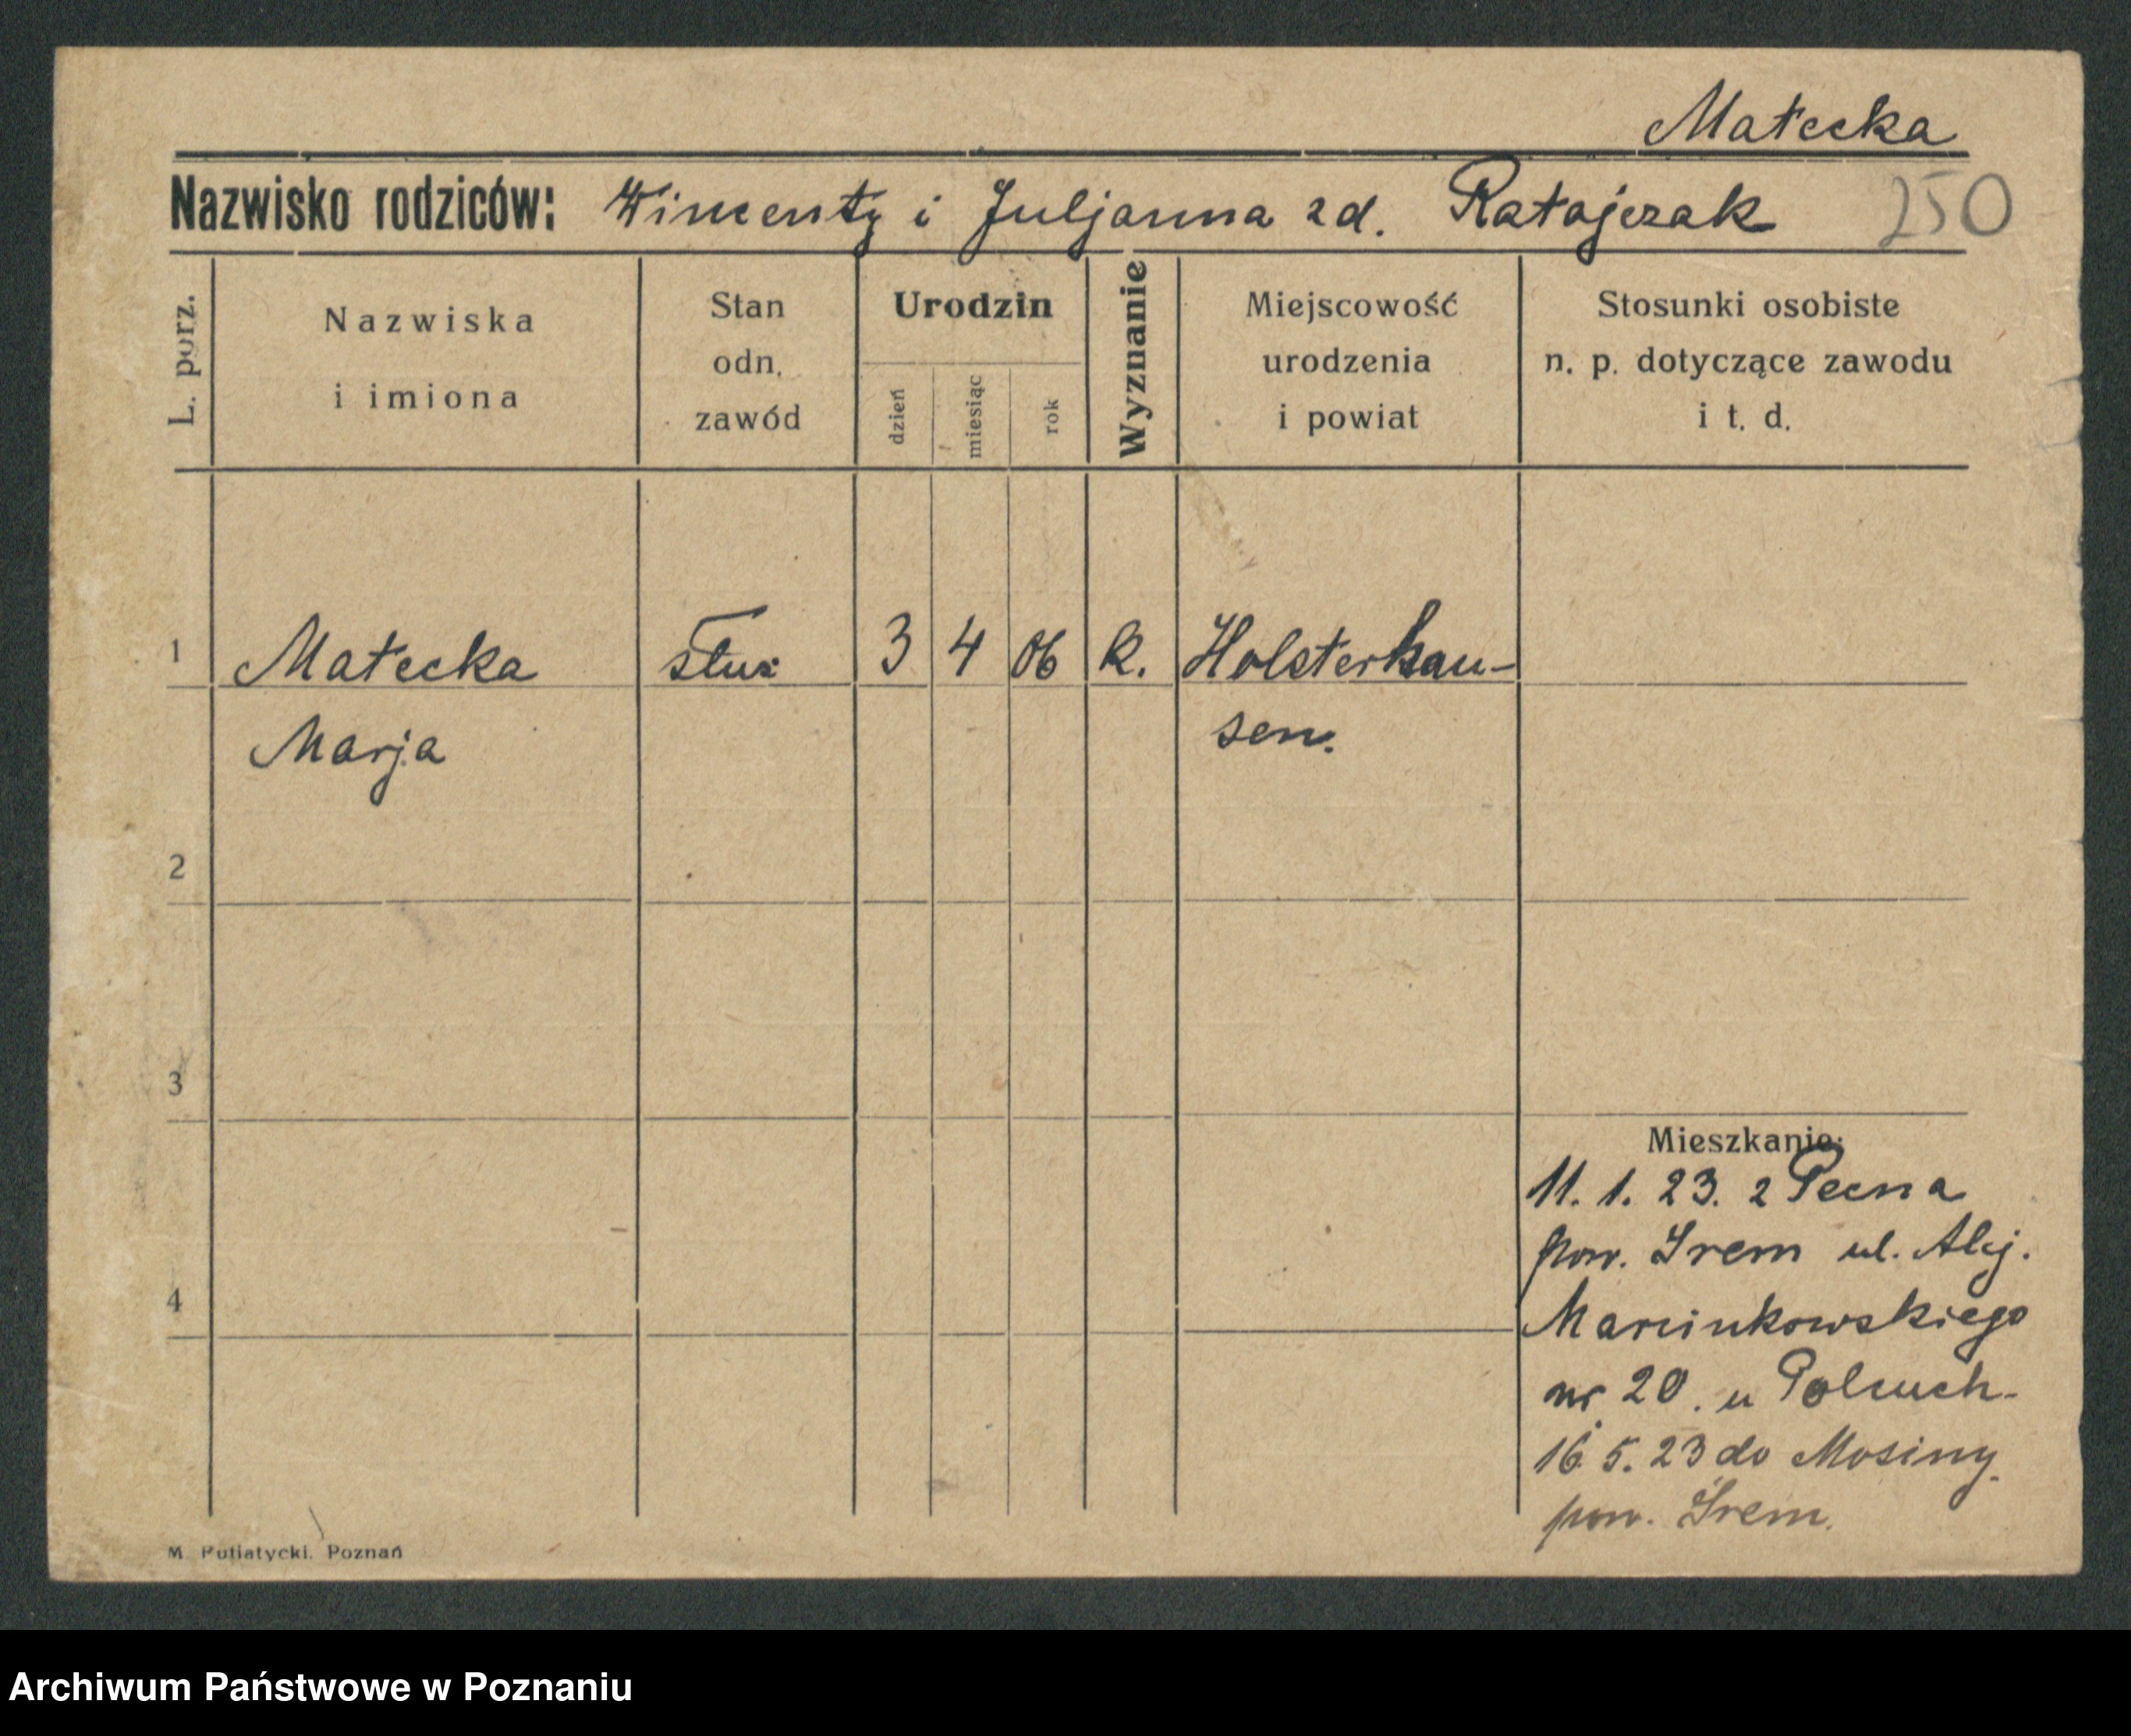 Małecka
Nazwisko rodziców: Wincenty i Juljanna zd. Ratajczak 250
L. porz.
Nazwiska
i imiona
Stan
odn.
zawód
Urodzin
dzień
miesiąc
rok
Wyznanie
Miejscowość
urodzenia
i powiat
Stosunki osobiste
n. p. dotyczące zawodu
i t. d.
1 Małecka służ 3 4 06 k. Holsterhau-
Marja sen.
2
3
4
Mieszkanie:
11. 1. 23. z Pecna
pow. Śrem ul. Alej.
Marcinkowskiego
nr 20. u
16. 5. 23 do Mosiny
pow. Śrem.
M. Putiatycki. Poznań
Archiwum Państwowe w Poznaniu